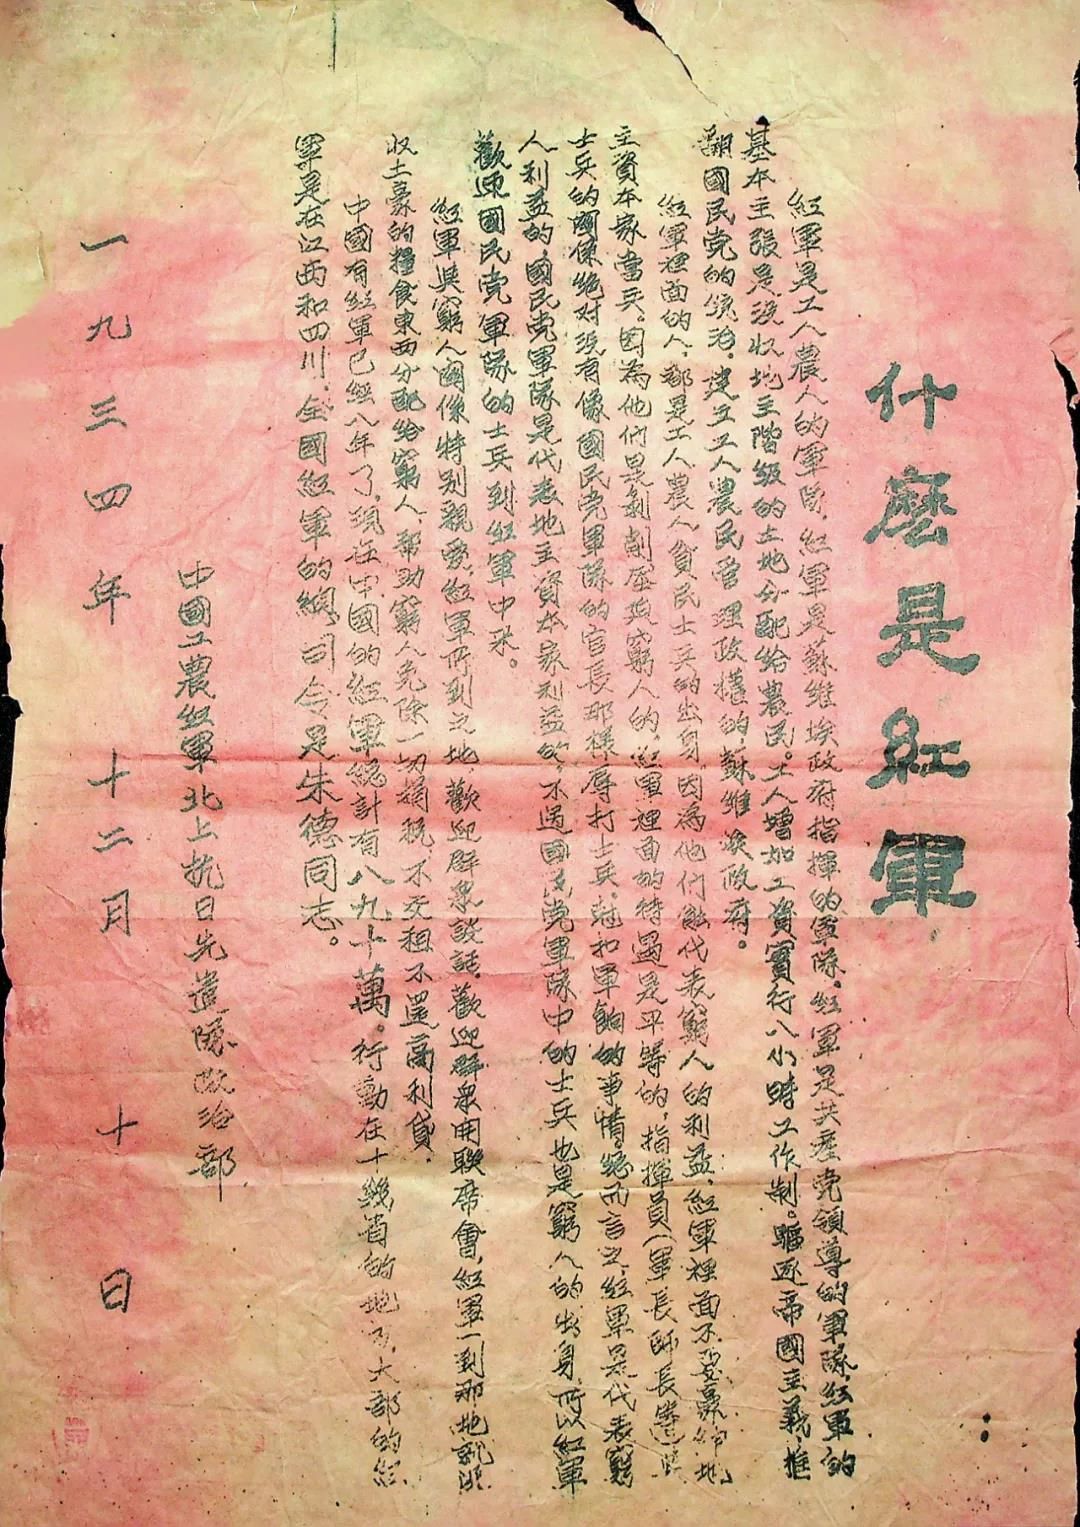 什麽是紅軍
紅軍是工人農人的軍隊，紅軍是蘇維埃政府指揮的軍隊。紅軍是共產党領導的軍隊，紅軍的
基本主張是没收地主階級的土地分配給農民。工人增加工資實行八小時工作制。驅逐帝國主義，推
翻國民党的統治。建立工人農民管理政權的，蘇維埃政府。
紅軍裡面的人，都是工人農人貧民士兵的出身，因為他們能代表窮人的利益，紅軍裡面不要豪紳地
主資本家當兵。因為他們是剝削壓迫窮人的，紅軍裡面的待遇是平等的，指揮員（軍長師長等）與
士兵的關係絶对没有像國民党軍隊的官長那樣辱打士兵。尅扣軍餉的事情。總而言之，紅軍是代表窮
人利益的，國民党軍隊是代表地主資本家利益的，不過國民党軍隊中的士兵也是窮人的出身，所以紅軍
歡迎國民党軍隊的士兵到紅軍中來。
紅軍與窮人関係特别親愛，紅軍所到之地，歡迎群衆談話，歡迎群衆開聯席會，紅軍一到那地就没
收土豪的糧食東西分配給窮人，幇助窮人免除一切捐税，不交租不還高利貸。
中國有紅軍已經八年了，現在中國的紅軍統計有八九十萬。行動在十幾省的地方，大部的紅
軍是在江西和四川，全國紅軍的總司令是朱德同志。
中國工農紅軍北上抗日先遣隊政治部
一九三四年十二月十日